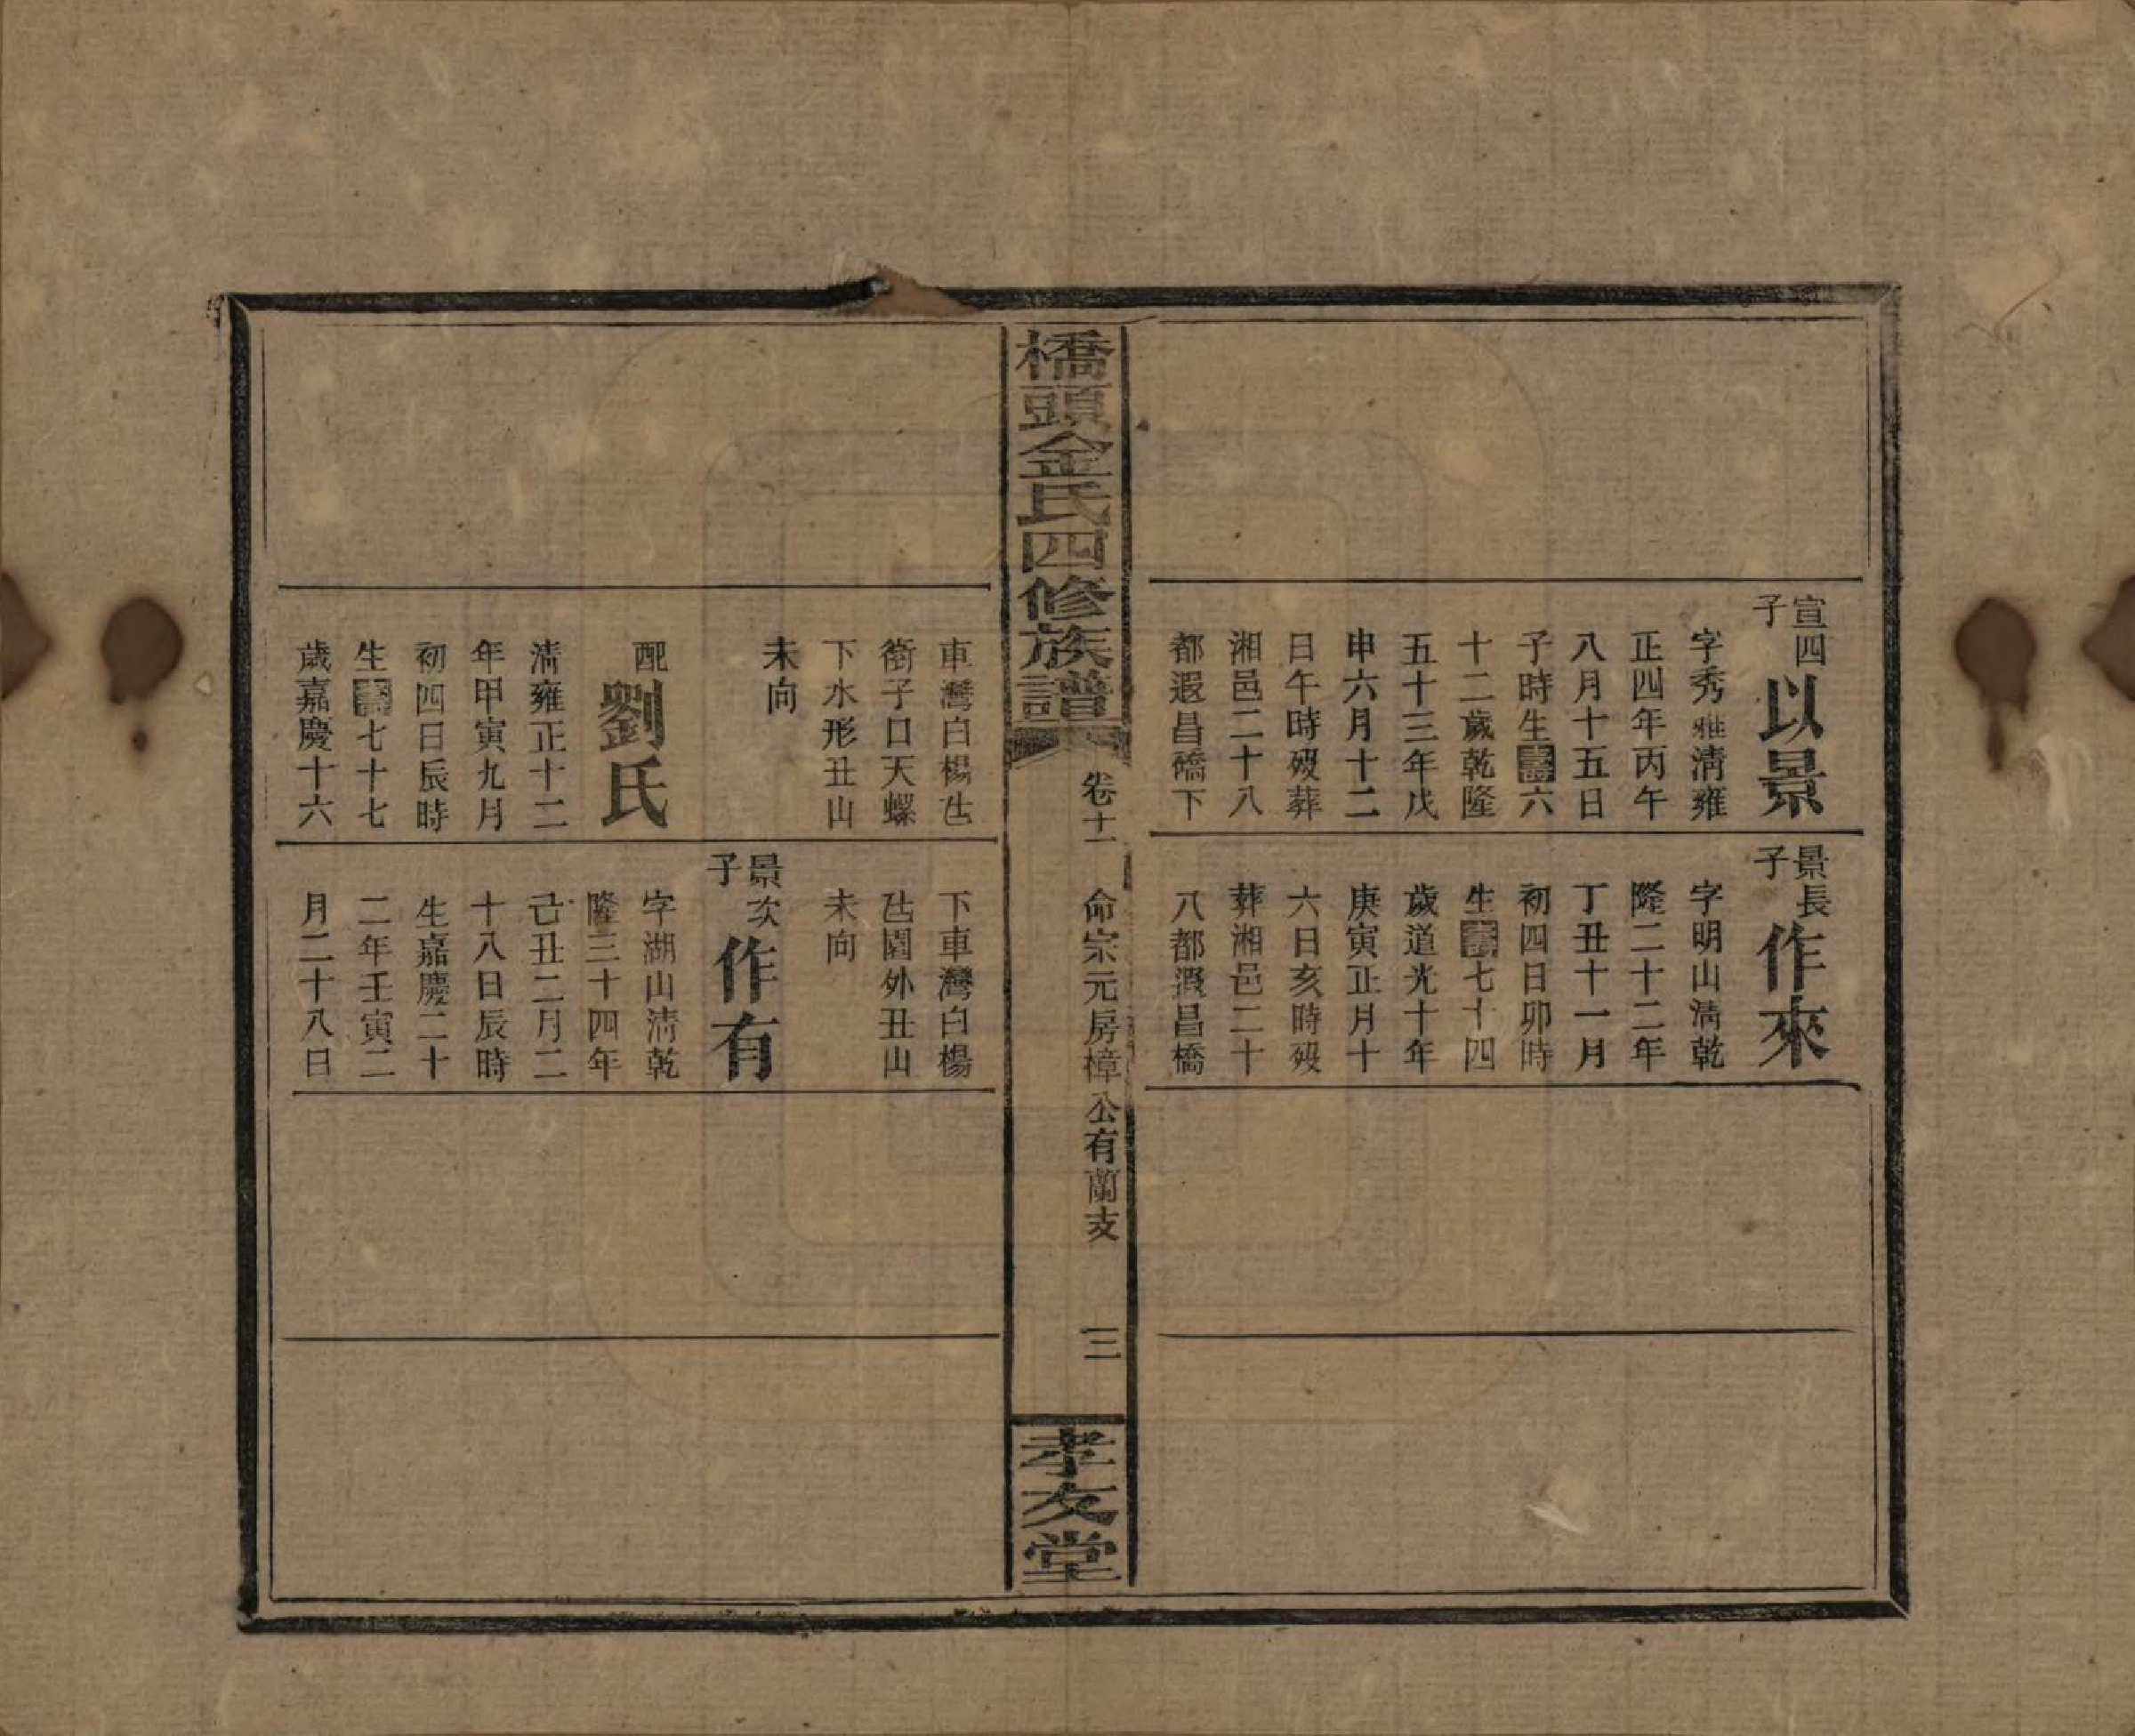 宣四子
以景
字秀雅淸雍
正四年丙午
八月十五日
子時生壽六
十二歲乾隆
五十三年戊
申六月十二
日午時歿葬
湘邑二十八
都遐昌礄下
景長子
作來
字明山淸乾
隆二十二年
丁丑十一月
初四日卯時
生壽七十四
歲道光十年
庚寅正月十
六日亥時歿
葬湘邑二十
八都遐昌橋
橋頭金氏四修族譜
卷十一
命宗元房樟公有蘭支
三
孝友堂
車灣白楊
衝子口天螺
下水形丑山
未向
配
劉氏
淸雍正十二
年甲寅九月
初四日辰時
生壽七十七
歲嘉慶十六
下車灣白楊
園外丑山
未向
景次子
作有
字湖山淸乾
隆三十四年
己丑二月二
十八日辰時
生嘉慶二十
二年壬寅二
月二十八日